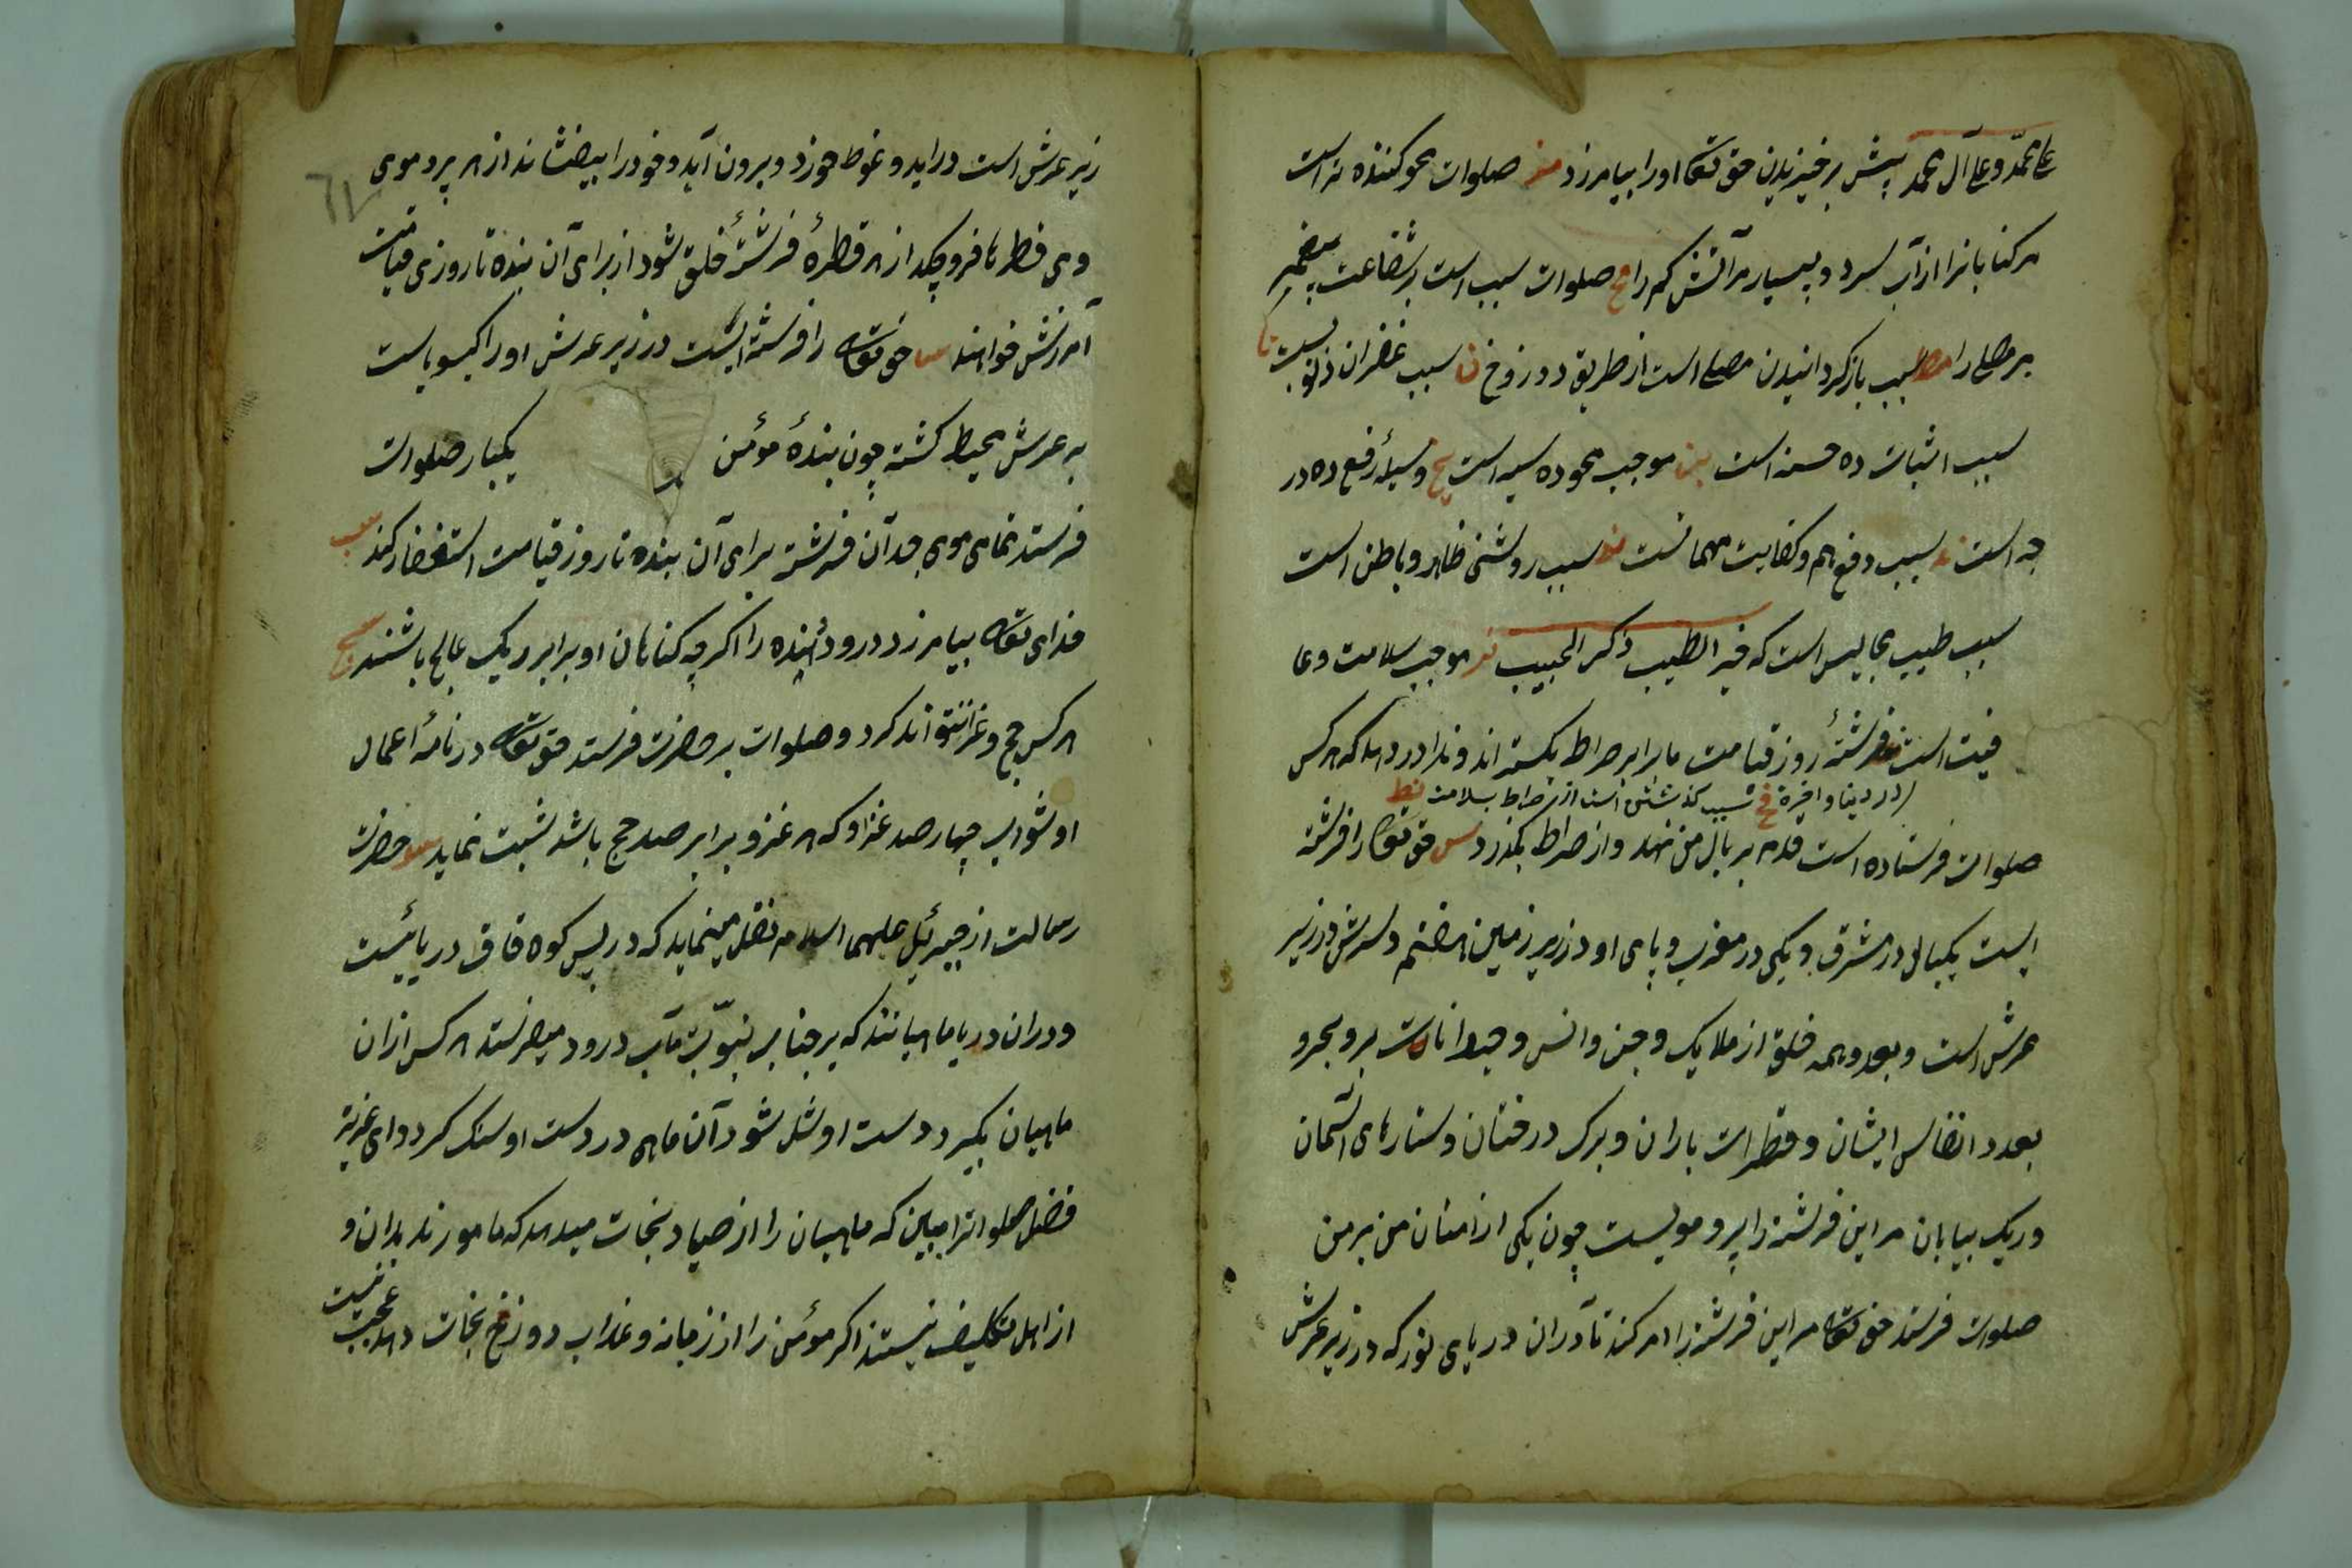 علی محمد و علی آل محمد پیش برخیزیدن حق تعالی او را بیامرزد مز صلوات محو کننده تر است
مر کناهانرا از آب سرد و بسیار مر آتش کرم را مح صلوات سبب است بر شفاعت پیغمبر
بر مصلی را مط سبب باز کردانیدن مصلی است از طریق دوزوخ ن سبب غفران ذنوبست نا
سبب اثبات ده حسنه است نب موجب محو ده سیه است نج وسیلهٔ رفع ده در
جه است ند سبب دفع هم و کفایت مهماتست نه سبب روشنی ظاهر و باطن است
سبب طبیب مجالیس است که خیر الطیب ذکر الحبیب نز موجب سلامت و عا
فیت است فرشتهٔ روز قیامت ما برابر صراط بکستراند و ندا در دهد که هر کس
در دنیا و اخرة نح سبب کذشتن است از صراط بسلامت نط
صلوات فرستاده است قدم بر بال من نهد و از صراط بکذرد س حق تعالی را فرشته
ایست یکبال در مشرق و یکی در مغرب و پای او در زیر زمین هفتم و سرش در زیر
عرش است و بعدد همه خلق از ملایک و جن و انس و حیوانات بر و بحر و
بعدد انفاس ایشان و قطرات باران و برک درختان و ستارهای آسمان
و ریک بیابان مر این فرشته را پر و مویست چون یکی از امتان من بر من
صلوات فرستد حق تعالی مر این فرشته را امر کند تا در ان دریای نور که در زیر عرش
زیر عرش است در اید و غوط خورد و برون آید و خود را بیفشاند از هر پر و موی
وی قطرها فرو چکد از هر قطرهٔ فرشتهٔ خلق شود از برای آن بنده تا روزی قیامت
آمرزش خواهند سا حق تعالی را فرشته ایست در زیر عرش او را کیسویاست
به عرش محیط کشته چون بندهٔ مؤمن یکبار صلوات
فرستد تمامی موی جد آن فرشته برای آن بنده تا روز قیامت استغفار کند سب
خدای تعالی بیامرزد درود دهنده را اکرچه کناهان او برابر ریک عالج باشند سج
هر کس حج و غزا نتواند کرد و صلوات بر حضرت فرستد حق تعالی در نامهٔ اعمال
او ثواب چهار صد غزا و که هر غزو برابر صد حج باشد ثبت نماید سد حضرت
رسالت از جبرئیل علیهما السلام نقل مینماید که در پس کوه قاف دریائیست
و در ان دریا ماهیانند که بر جناب نبوّت مآب درود میفرستند هر کس از ان
ماهیان بکیرد دست او شل شود آن ماهی در دست او سنک کردد ای عزیز
فضل صلواترا ببین که ماهیان را از صیاد نجات میدهد که مامور نه بدان و
از اهل تکلیف نیستند اکر مؤمن را از زبانه و عذاب دوزخ نجات دهد عجب نیست